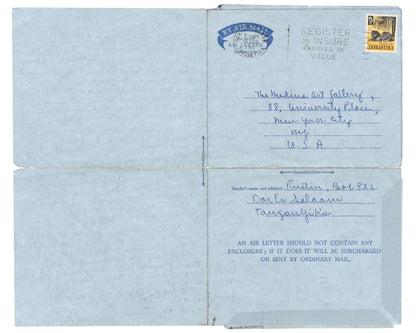 BY AIR MAIL
AIR LETTER
REGISTER
OR INSURE
ARTICLES OF
VALUE
TANGANYIKA
The Medina Art Gallery,
88, University Place,
New York City
NY
U.S.A
Second fold here
Sender's name and address: Rustin, Box 822
Dar Es Salaam
Tanganyika
AN AIR LETTER SHOULD NOT CONTAIN ANY
ENCLOSURE; IF IT DOES IT WILL BE SURCHARGED
OR SENT BY ORDINARY MAIL.